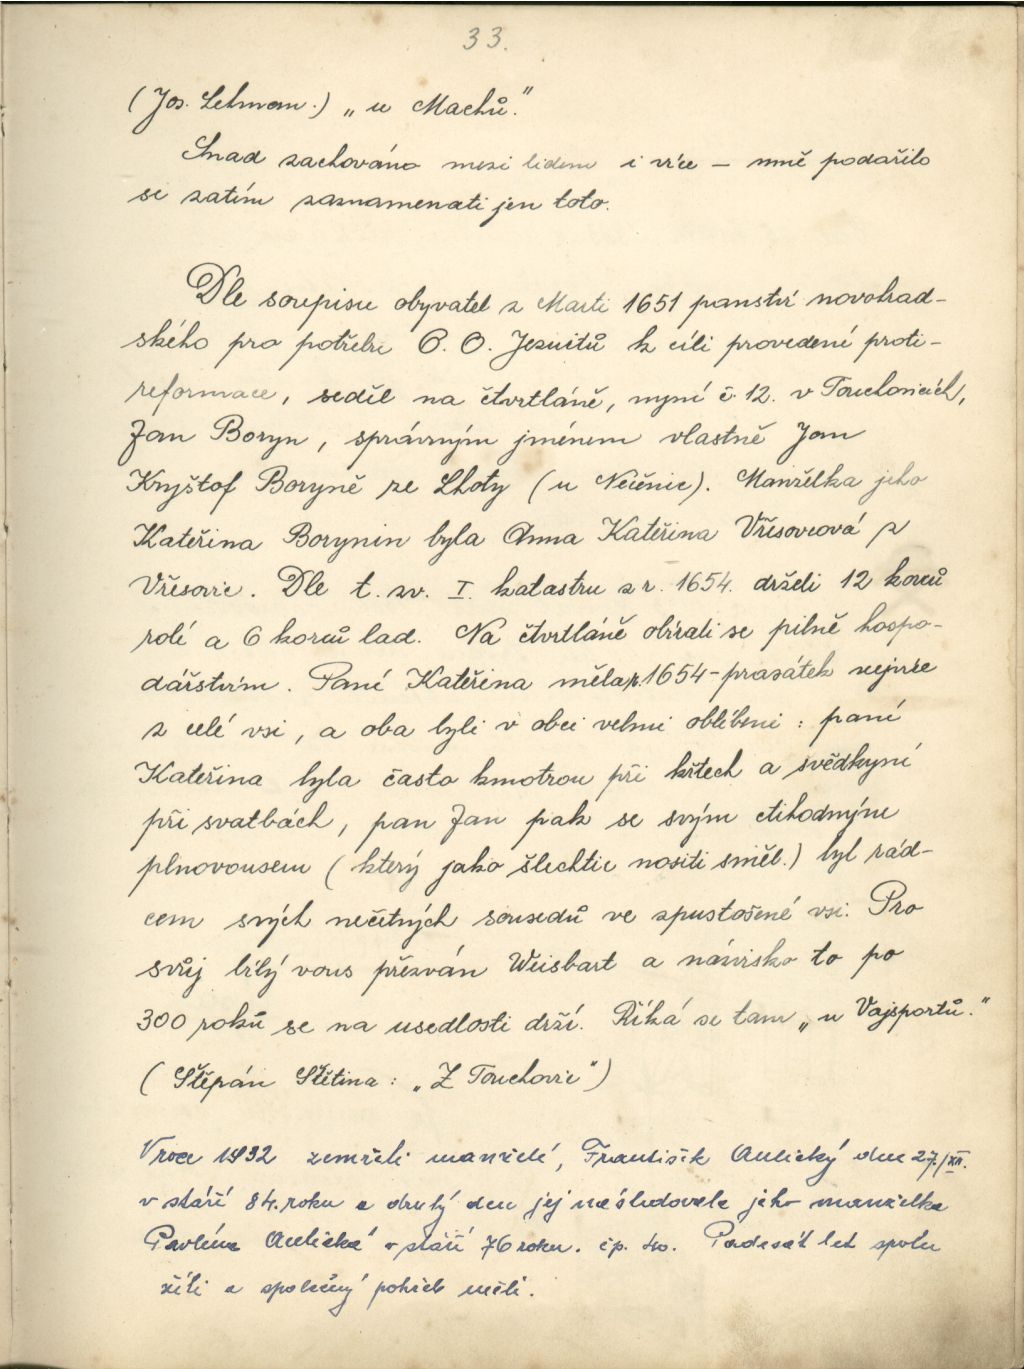 33.
(Jos. Lehman.) „u Machů."
Snad zachováno mezi lidem i více – mně podařilo
se zatím zaznamenati jen toto.
Dle soupisu obyvatel z Marti 1651 panství novohrad-
ského pro potřebu P. O. Jezuitů k cíli provedení proti-
reformace, seděl na čtvrtláně, nyní č. 12. v Touchovicích,
Jan Boryn, správným jménem vlastně Jan
Kryštof Boryně ze Lhoty (u Nečínic). Manželka jeho
Kateřina Borynin byla Anna Kateřina Vřesovcová z
Vřesovic. Dle t. zv. I. katastru z r. 1654. drželi 12 korců
rolí a 6 korců lad. Na čtvrtláně obírali se pilně hospo-
dářstvím. Paní Kateřina měla r. 1654 – prasátek nejvíce
z celé vsi, a oba byli v obci velmi oblíbeni: paní
Kateřina byla často kmotrou při křtech a svědkyní
při svatbách, pan Jan pak se svým ctihodným
plnovousem (který jako šlechtic nositi směl.) byl rád-
cem svých nečetných sousedů ve zpustošené vsi. Pro
svůj bílý vous přezván Weisbart a návisko to po
300 roků se na usedlosti drží. Říká se tam „u Vajsportů."
(Štěpán Štětina: „Z Touchovic")
V roce 1932 zemřeli manželé, František Aulický dne 27./XII.
v stáří 84. roku a druhý den jej následovala jeho manželka
Pavlína Aulická v stáří 76 roku. čp. 40. Padesát let spolu
žili a společný pohřeb měli.